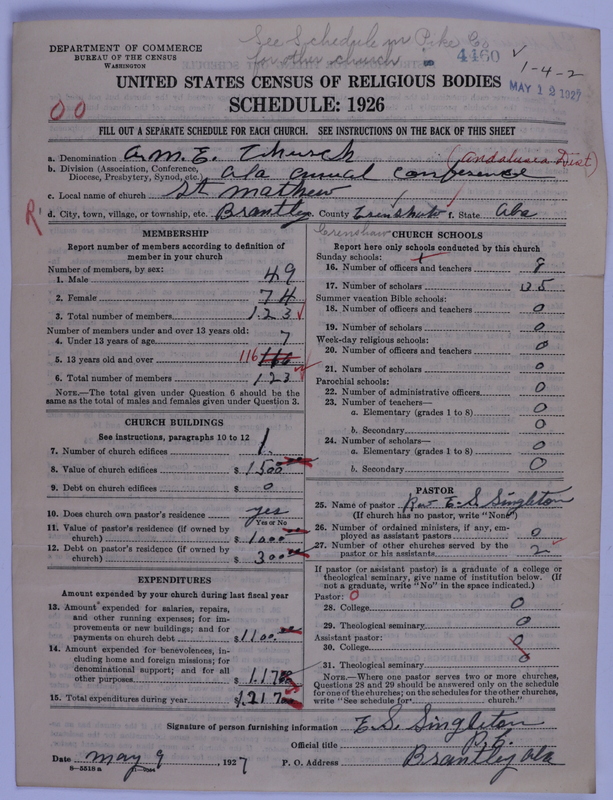 See Schedule in Pike Co
for other church
4460
1-4-2
MAY 12 1927
DEPARTMENT OF COMMERCE
BUREAU OF THE CENSUS
WASHINGTON
UNITED STATES CENSUS OF RELIGIOUS BODIES
SCHEDULE: 1926
FILL OUT A SEPARATE SCHEDULE FOR EACH CHURCH. SEE INSTRUCTIONS ON THE BACK OF THIS SHEET
a. Denomination A.M.E. Church (Andalusia Dist)
b. Division (Association, Conference, Diocese, Presbytery, Synod, etc.) Ala annual conference
c. Local name of church St Mathew
R d. City, town, village, or township, etc. Brantley e. County Crenshaw f. State Ala
Crenshaw
MEMBERSHIP
Report number of members according to definition of member in your church
Number of members, by sex:
1. Male 49
2. Female 74
3. Total number of members 123
Number of members under and over 13 years old:
4. Under 13 years of age 7
5. 13 years old and over 116
6. Total number of members 123
NOTE.—The total given under Question 6 should be the same as the total of males and females given under Question 3.
CHURCH BUILDINGS
See instructions, paragraphs 10 to 12
7. Number of church edifices 1
8. Value of church edifices $ 1500
9. Debt on church edifices $ 0
10. Does church own pastor's residence yes
Yes or No
11. Value of pastor's residence (if owned by church) $ 1000
12. Debt on pastor's residence (if owned by church) $ 300
EXPENDITURES
Amount expended by your church during last fiscal year
13. Amount expended for salaries, repairs, and other running expenses; for improvements or new buildings; and for payments on church debt $ 1100
14. Amount expended for benevolences, including home and foreign missions; for denominational support; and for all other purposes $ 117
15. Total expenditures during year $ 1217
CHURCH SCHOOLS
Report here only schools conducted by this church
Sunday schools:
16. Number of officers and teachers 8
17. Number of scholars
Summer vacation Bible schools:
18. Number of officers and teachers 0
19. Number of scholars 0
Week-day religious schools:
20. Number of officers and teachers 0
21. Number of scholars 0
Parochial schools:
22. Number of administrative officers 0
23. Number of teachers—
a. Elementary (grades 1 to 8) 0
b. Secondary 0
24. Number of scholars—
a. Elementary (grades 1 to 8) 0
b. Secondary 0
PASTOR
25. Name of pastor Rev E.S. Singleton
(If church has no pastor, write "None")
26. Number of ordained ministers, if any, employed as assistant pastors 0
27. Number of other churches served by the pastor or his assistants 2
If pastor (or assistant pastor) is a graduate of a college or theological seminary, give name of institution below. (If not a graduate, write "No" in the space indicated.)
Pastor: 0
28. College 0
29. Theological seminary 0
Assistant pastor:
30. College 0
31. Theological seminary 0
NOTE.—Where one pastor serves two or more churches, Questions 28 and 29 should be answered only on the schedule for one of the churches; on the schedules for the other churches, write "See schedule for church."
Signature of person furnishing information E.S. Singleton
Official title P.E.
Date May 9 1927 P. O. Address Brantley Ala
8—5518 a